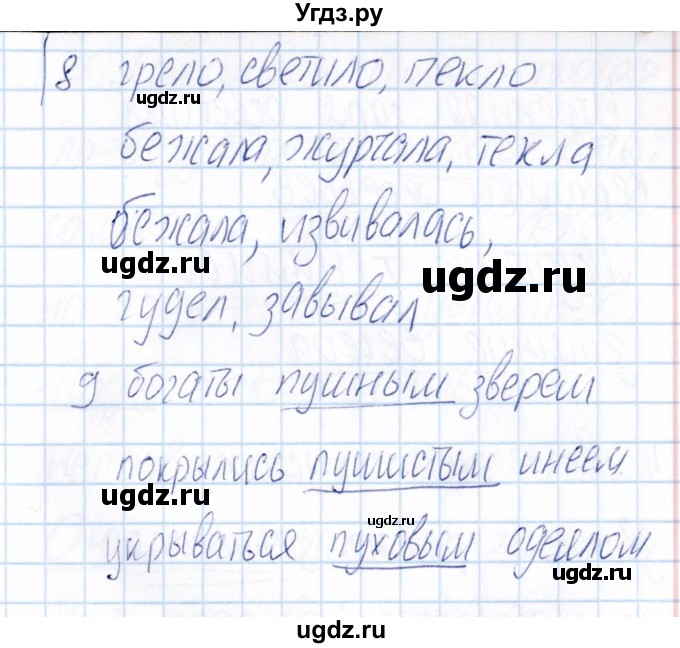 Угдз.ру
8 грело, светило, пекло
ugdz.ru
бежала, журчала, текла
бежала, извивалась,
ugdz.ru
ugdz.ru
гудел, завывал
9 богаты пушным зверем
покрылись пушистым инеем
ugdz.ru
ugdz.ru
укрываться пуховым одеялом
ugdz.ru
ugdz.ru